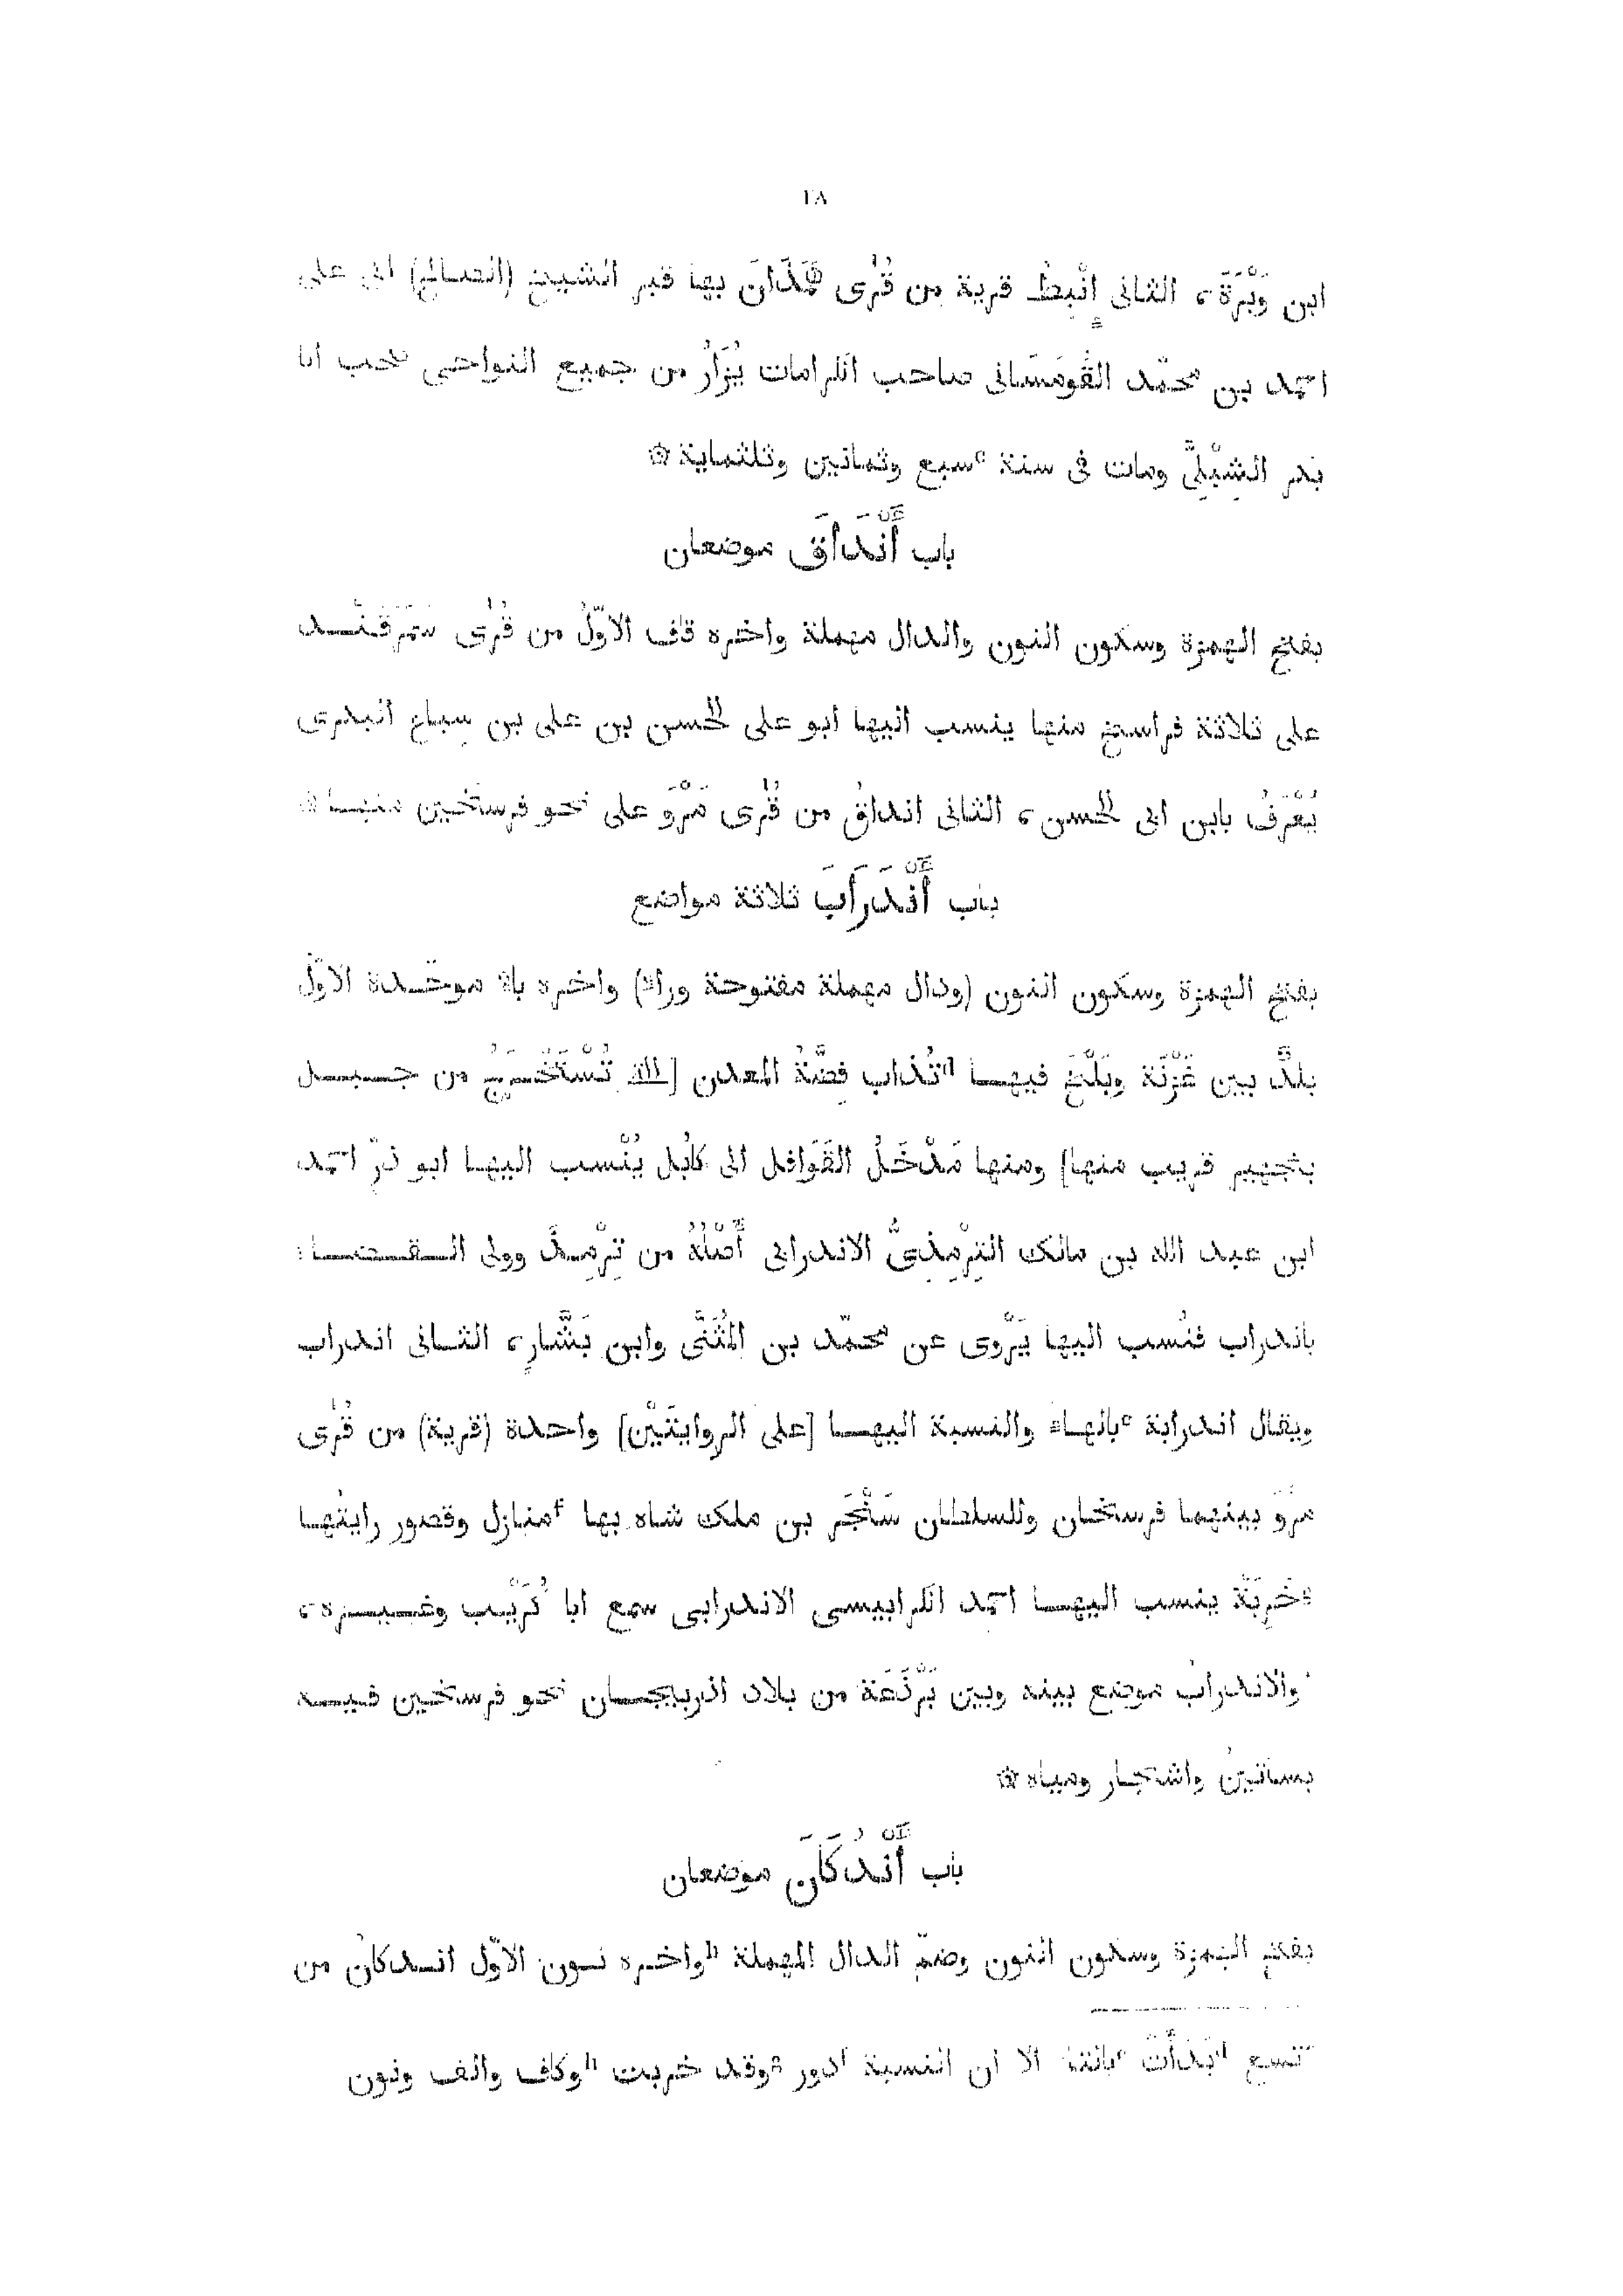 ٢٨
ابن وَبْرَةَ، الثانى إِنْبِطُ قرية من قُرَى هَمَذَانَ بها قبر الشيخ (الصالح) ابى على
احمد بن محمّد القُومَسَانى صاحب الكرامات يُزَارُ من جميع النواحى صحب ابا
بكر الشِبْلِىَّ ومات فى سنة سبع وثمانين وثلثماية ۞
باب أَنْدَاقَ موضعان
بفتح الهمزة وسكون النون والدال مهملة واخره قاف الاوّلُ من قُرَى سَمَرْقَنْد
على ثلاثة فراسخ منها ينسب اليها ابو على الحسن بن على بن سباع البكرى
يُعْرَفُ بابن ابى الحسن، الثانى انداقُ من قُرَى مَرْوَ على نحو فرسخين منها ۞
باب أَنْدَرَابَ ثلاثة مواضع
بفتح الهمزة وسكون النون (ودال مهملة مفتوحة وراء) واخره باء موحّدة الاوّل
بلدٌ بين غَزْنَة وبَلْخ فيها ᵈتُذاب فِضَّةُ المعدن [الله تُسْتَخْرَجُ من جبل
بنجهير قريب منها] ومنها مَدْخَلُ القَوَافل الى كابُل يُنْسب اليها ابو ذرّ احمد
ابن عبد الله بن مالك التِرْمِذِىُّ الاندرابى أَصْلُهُ من تِرْمِذَ وولى القضاء
باندراب فنُسب اليها يَرْوى عن محمّد بن المُثَنَّى وابن بَشَّارٍ، الثانى اندراب
ويقال اندرابة ᵉبالهاء والنسبة اليها [على الروايتَيْن] واحدة (قرية) من قُرَى
مَرْوَ بينهما فرسخان وللسلطان سَنْجَر بن ملك شاه بها ᶠمنازل وقصور رايتُها
ᵍخَرِبَةً ينسب اليها احمد الكرابيسى الاندرابى سمع ابا كُرَيْب وغيره،
والاندرابُ موضع بينه وبين بَرْذَعَة من بلاد اذربيجان نحو فرسخين فيه
بساتينُ واشجار ومياه ۞
باب أَنْدُكَانَ موضعان
بفتح الهمزة وسكون النون وضمّ الدال المهملة ʰواخره نون الاوّل اندكانُ من
تسع ᵈبَدَأَتْ ᵉبالتاء الا ان النسبة ᶠدور ᵍوقد خربت ʰوكاف والف ونون